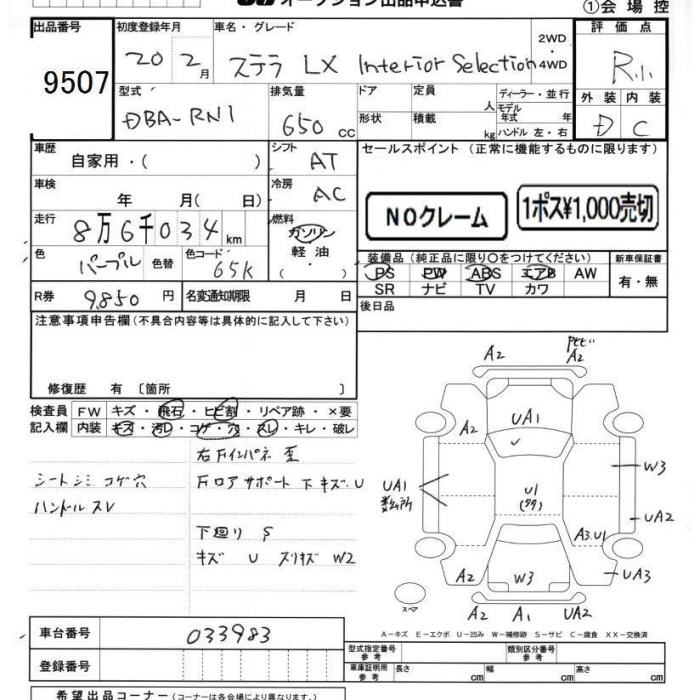 オークション出品申込書
①会場控
出品番号 初度登録年月 車名・グレード 評価点
9507 20 2月 ステラ LX Interior Selection 2WD・4WD R小
型式 排気量 ドア 定員 人 ディーラー・並行 外装 内装
DBA-RN1 650 cc 形状 積載 kg モデル年式 年 ハンドル 左・右 D C
車歴 自家用・( ) シフト AT セールスポイント (正常に機能するものに限ります)
車検 年 月( 日) 冷房 AC NOクレーム 1ポス¥1,000売切
走行 8万6千034 km 燃料 ガソリン 軽油 ( ・ )
色 パープル 色替 色コード 65K 装備品 (純正品に限り○をつけてください) 新車保証書
PS PW ABS エアB AW 有・無
SR ナビ TV カワ
R券 9850円 名変通知期限 月 日 後日品
注意事項申告欄 (不具合内容等は具体的に記入して下さい)
修復歴 有 〔箇所 〕
検査員 FW キズ・飛石・ヒビ割・リペア跡・×要
記入欄 内装 キズ・汚レ・コゲ・穴・スレ・キレ・破レ
右Fインパネ歪
シートシミ コゲ穴 Fロアサポート下キズ、U
ハンドルスレ
下廻り S
キズ U スリキズ W2
A2 A2
UA1
A2
W3
UA1 数ヵ所
U1
UA2
A3.U1
A2 W3 UA3
スペア A2 A1 UA2
A-キズ E-エクボ U-凹み W-補修跡 S-サビ C-腐食 XX-交換済
車台番号 033983
型式指定番号 参考 類別区分番号 参考
登録番号 車庫証明用 参考 長さ cm 幅 cm 高さ cm
希望出品コーナー (コーナーは各会場により異なります。)